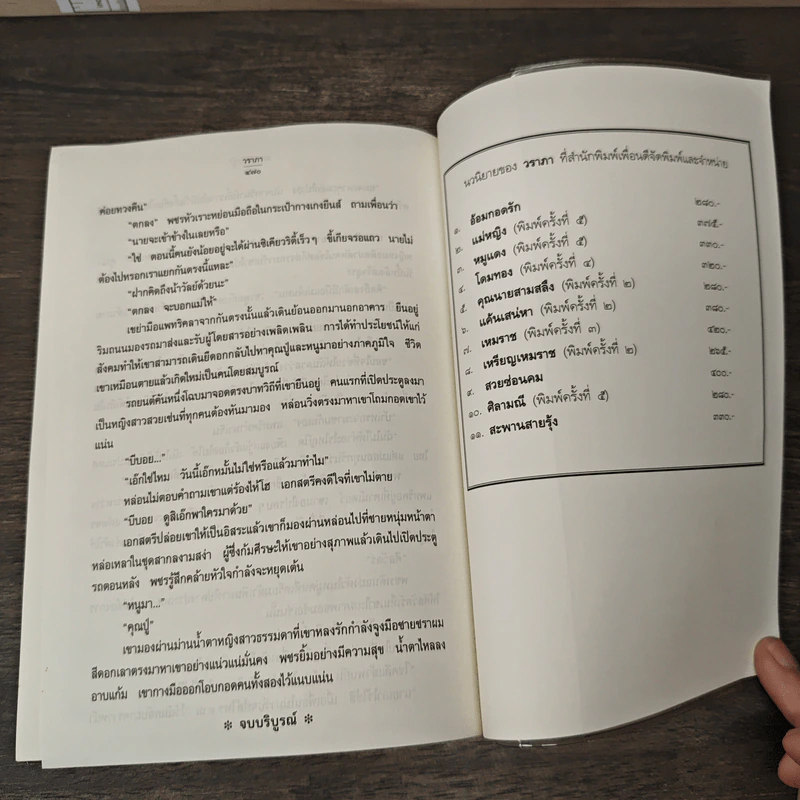 วราภา
๔๗๐
ค่อยทวงคืน”
“ตกลง” พชรหัวเราะหย่อนมือถือในกระเป๋ากางเกงยีนส์ ถามเพื่อนว่า
“นายจะเข้าข้างในเลยหรือ”
“ใช่ ตอนนี้คนยังน้อยอยู่จะได้ผ่านซิเคียวริตี้เร็วๆ ขี้เกียจรอแถว นายไม่
ต้องไปหรอกเราแยกกันตรงนี้แหละ”
“ฝากคิดถึงน้าวัลย์ด้วยนะ”
“ตกลง จะบอกแม่ให้”
เขย่ามือแพทริคลาจากกันตรงนั้นแล้วเดินย้อนออกมานอกอาคาร ยืนอยู่
ริมถนนมองรถมาส่งและรับผู้โดยสารอย่างเพลิดเพลิน การได้ทำประโยชน์ให้แก่
สังคมทำให้เขาสามารถเดินยืดอกกลับไปหาคุณปู่และหนูมาอย่างภาคภูมิใจ ชีวิต
เขาเหมือนตายแล้วเกิดใหม่เป็นคนโดยสมบูรณ์
รถยนต์คันหนึ่งโฉบมาจอดตรงบาทวิถีที่เขายืนอยู่ คนแรกที่เปิดประตูลงมา
เป็นหญิงสาวสวยเช่นที่ทุกคนต้องหันมามอง หล่อนวิ่งตรงมาหาเขาโถมกอดเขาไว้
แน่น
“บีบอย...”
“เอ๊กใช่ไหม วันนี้เอ๊กหมั้นไม่ใช่หรือแล้วมาทำไม”
หล่อนไม่ตอบคำถามเขาแต่ร้องไห้โฮ เอกสตรีคงดีใจที่เขาไม่ตาย
“บีบอย ดูสิเอ๊กพาใครมาด้วย”
เอกสตรีปล่อยเขาให้เป็นอิสระแล้วเขาก็มองผ่านหล่อนไปที่ชายหนุ่มหน้าตา
หล่อเหลาในชุดสากลงามสง่า ผู้ซึ่งก้มศีรษะให้เขาอย่างสุภาพแล้วเดินไปเปิดประตู
รถตอนหลัง พชรรู้สึกคล้ายหัวใจกำลังจะหยุดเต้น
“หนูมา...”
“คุณปู่”
เขามองผ่านม่านน้ำตาหญิงสาวธรรมดาที่เขาหลงรักกำลังจูงมือชายชราผม
สีดอกเลาตรงมาหาเขาอย่างแน่วแน่มั่นคง พชรยิ้มอย่างมีความสุข น้ำตาไหลลง
อาบแก้ม เขากางมือออกโอบกอดคนทั้งสองไว้แนบแน่น
* จบบริบูรณ์ *
นวนิยายของ วราภา ที่สำนักพิมพ์เพื่อนดีจัดพิมพ์และจำหน่าย
๑. อ้อมกอดรัก ๒๘๐.-
๒. แม่หญิง (พิมพ์ครั้งที่ ๕) ๓๗๕.-
๓. หมูแดง (พิมพ์ครั้งที่ ๕) ๓๓๐.-
๔. โดมทอง (พิมพ์ครั้งที่ ๔) ๓๒๐.-
๕. คุณนายสามสลึง (พิมพ์ครั้งที่ ๒) ๒๘๐.-
๖. แค้นเสน่หา (พิมพ์ครั้งที่ ๒) ๓๘๐.-
๗. เหมราช (พิมพ์ครั้งที่ ๓) ๔๒๐.-
๘. เหรียญเหมราช (พิมพ์ครั้งที่ ๒) ๒๖๕.-
๙. สวยซ่อนคม ๔๐๐.-
๑๐. ศิลามณี (พิมพ์ครั้งที่ ๕) ๒๘๐.-
๑๑. สะพานสายรุ้ง ๓๓๐.-